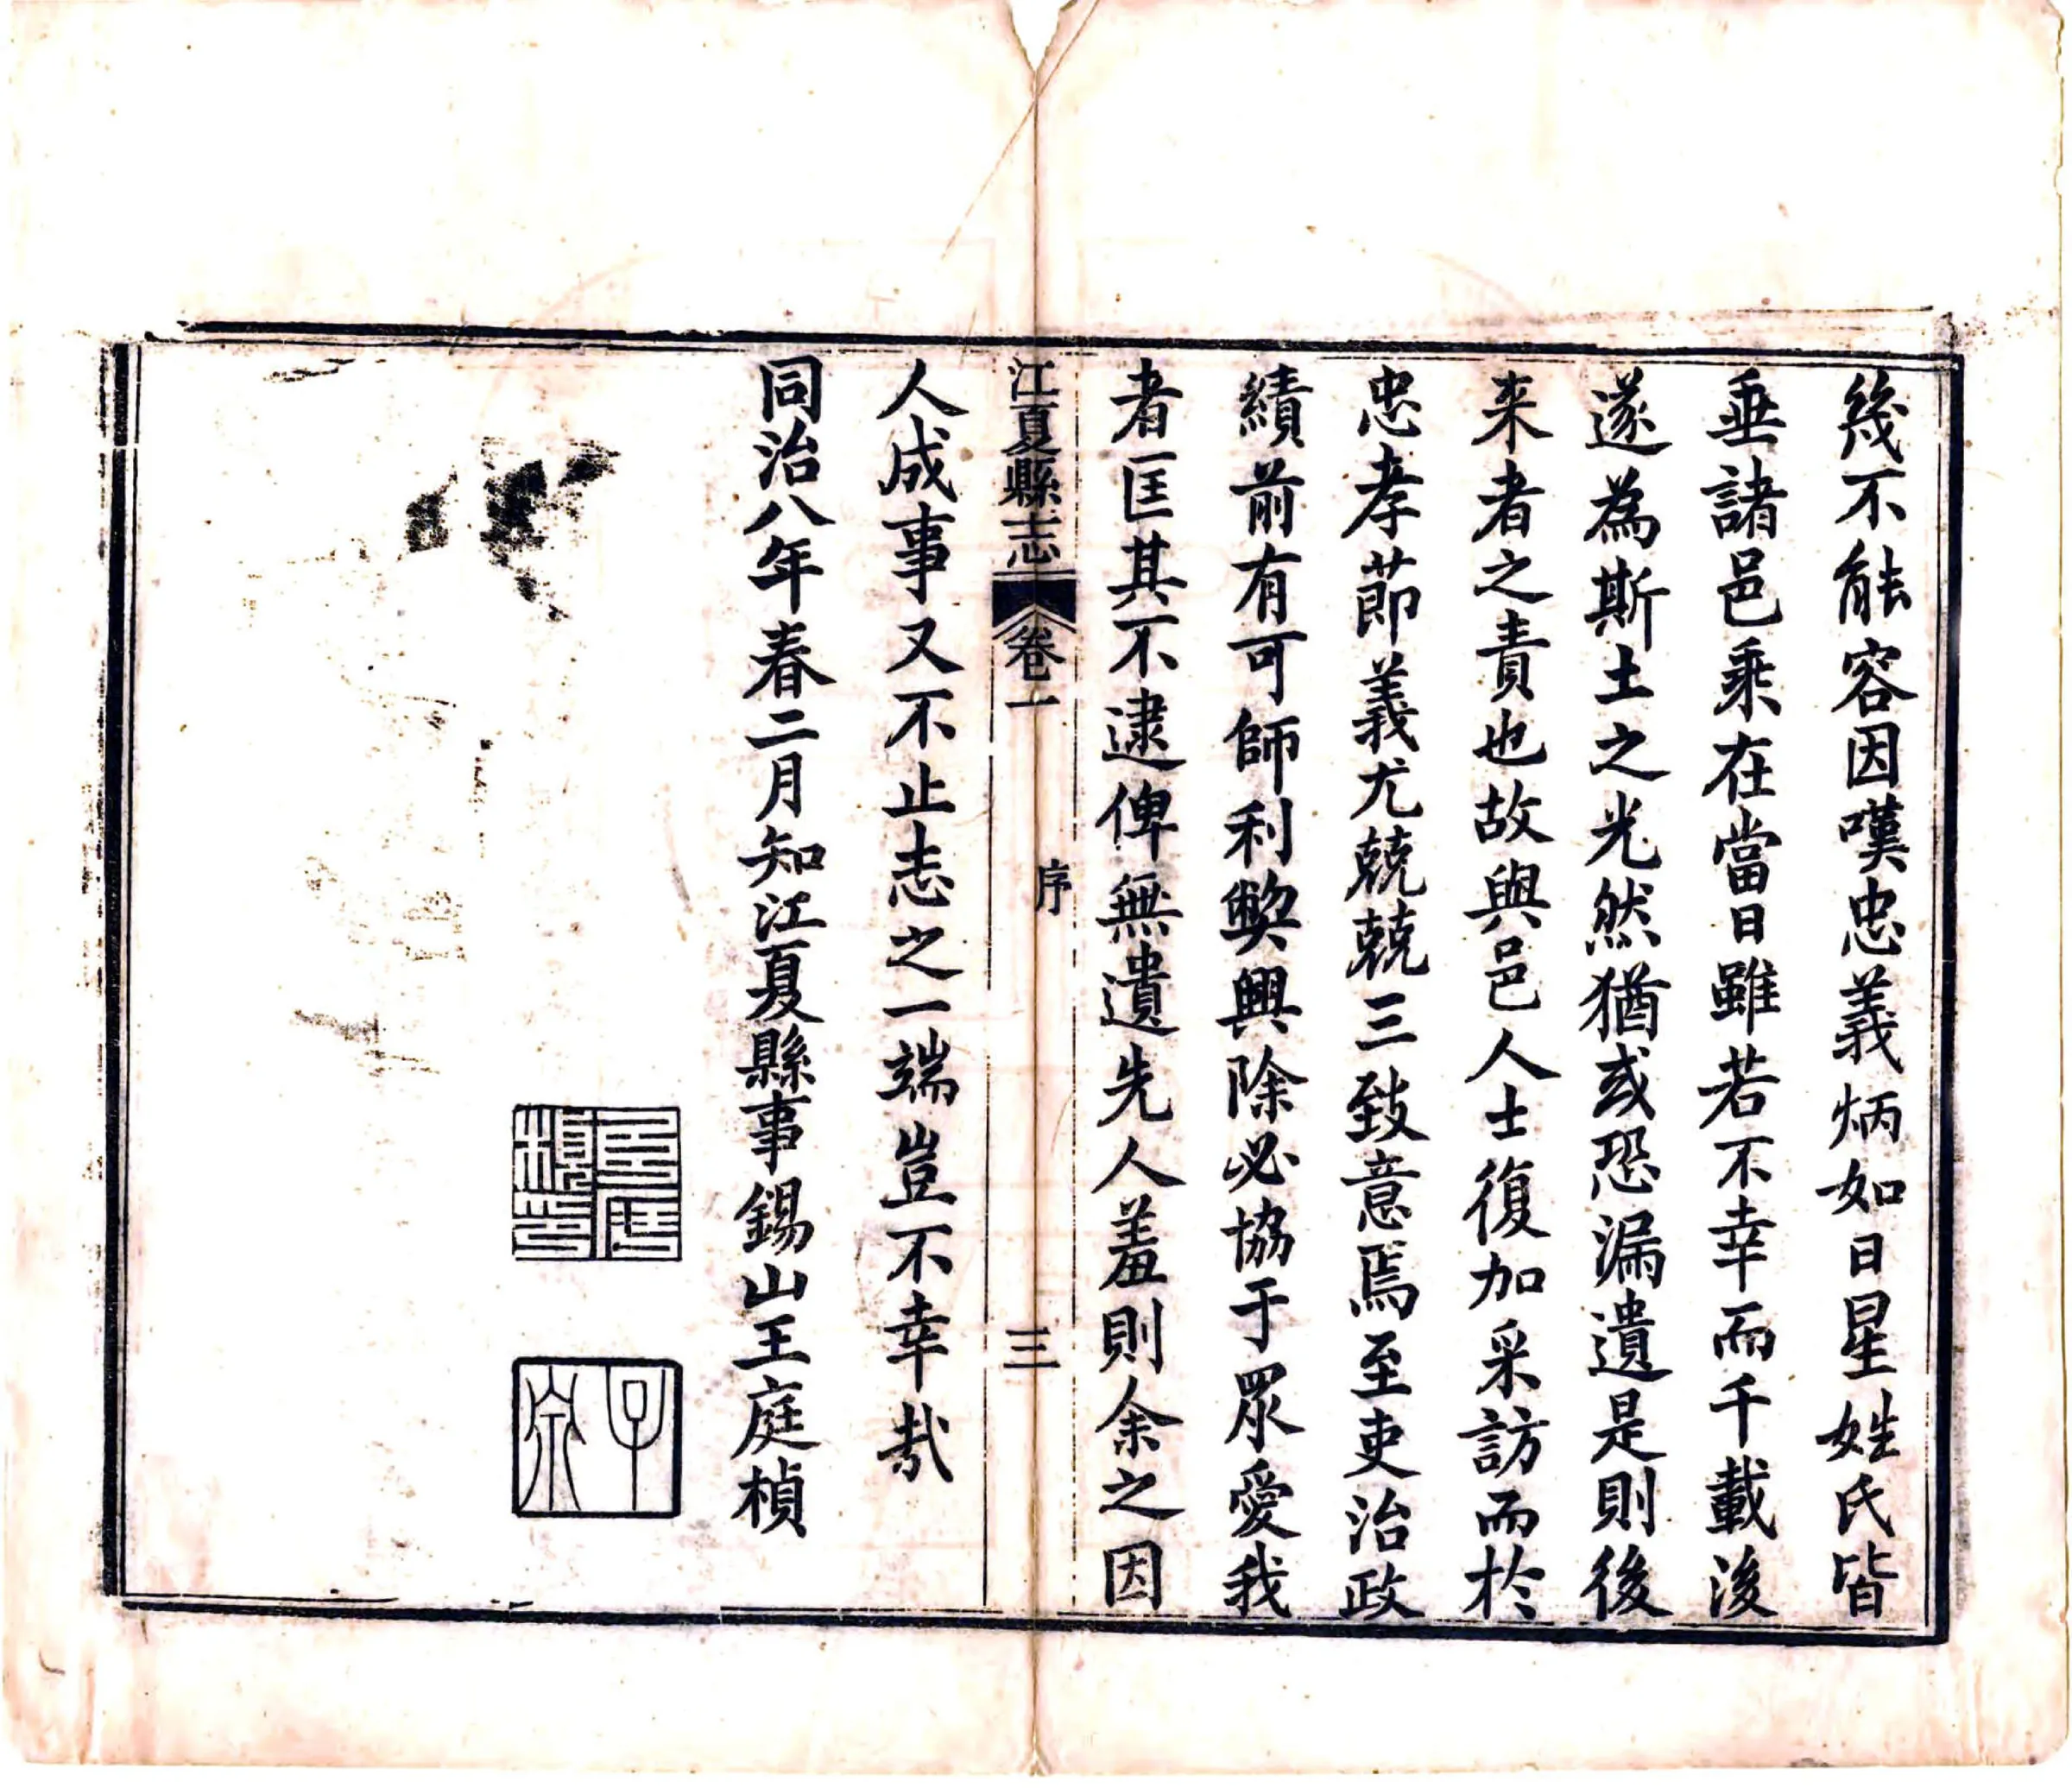 幾不能容因嘆忠義炳如日星姓氏皆
垂諸邑乘在當日雖若不幸而千載後
遂為斯土之光然猶或恐漏遺是則後
来者之責也故與邑人士復加采訪而於
忠孝節義尤兢兢三致意焉至吏治政
績前有可師利獘興除必協于眾愛我
者匡其不逮俾無遺先人羞則余之因
江夏縣志 卷一 序 三
人成事又不止志之一端豈不幸哉
同治八年春二月知江夏縣事錫山王庭楨
王庭楨印
子泉